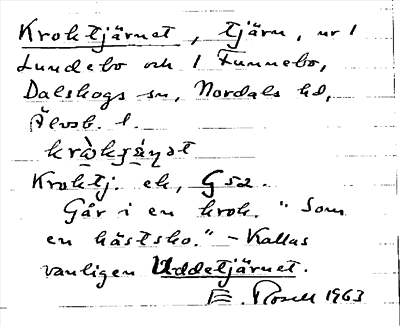 Kroktjärnet, tjärn, nr 1
Lundebo och 1 Funnebo,
Dalskogs sn, Nordals hd,
Älvsb. l.
Kroktj. ek, G 52.
Går i en krok. "Som
en hästsko." – Kallas
vanligen Uddetjärnet.
E. Rosell 1963